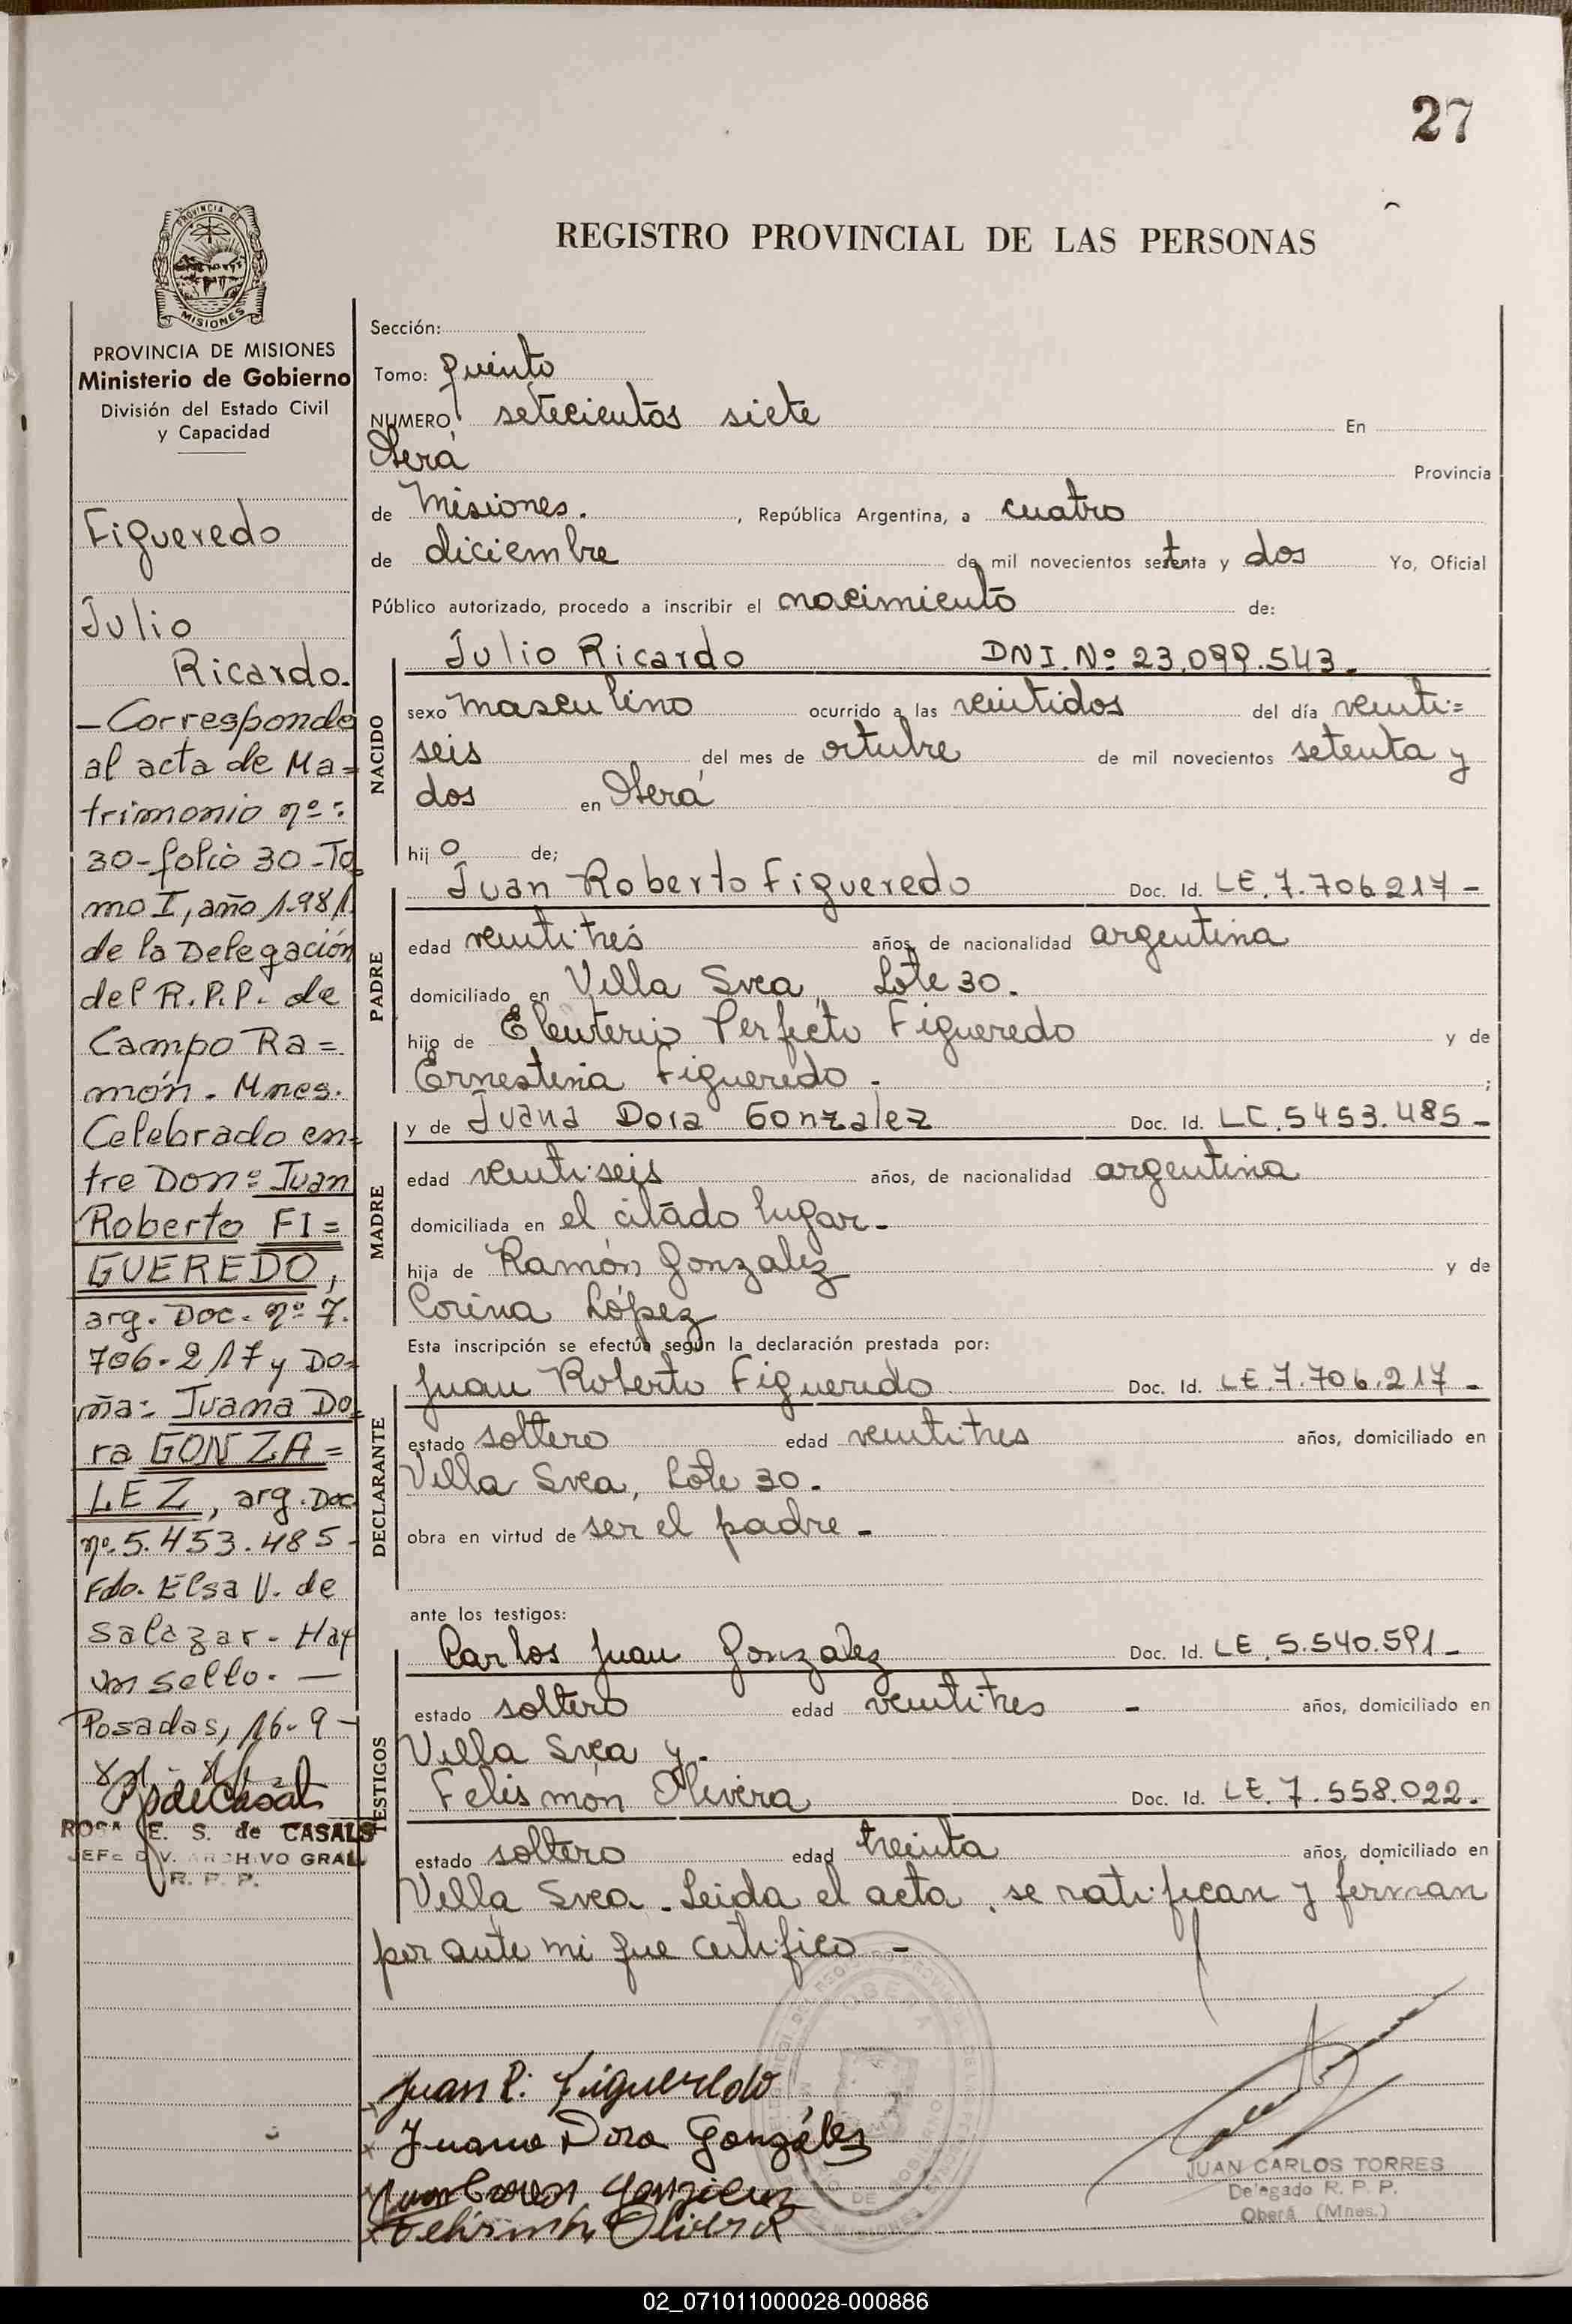 27
REGISTRO PROVINCIAL DE LAS PERSONAS
PROVINCIA DE
MISIONES
PROVINCIA DE MISIONES
Ministerio de Gobierno
División del Estado Civil
y Capacidad
Figueredo
Julio
Ricardo.
- Corresponde
al acta de Ma=
trimonio nº:
30-folio 30-To
mo I, año 1.981
de la Delegación
del R.P.P. de
Campo Ra=
món. Mnes.
Celebrado en-
tre Don: Juan
Roberto FI=
GUEREDO,
arg. Doc. nº 7.
706.217 y Do-
ña: Juana Do-
ra GONZA=
LEZ, arg. Doc
nº 5.453.485-
Fdo. Elsa V. de
Salazar - Hay
un sello. —
Posadas, 16-9-
ROSA E. S. de CASALS
JEFE DIV. ARCHIVO GRAL
R. P. P.
Sección:
Tomo: Quinto
NUMERO setecientos siete En
Oberá Provincia
de Misiones. , República Argentina, a cuatro
de diciembre de mil novecientos setenta y dos Yo, Oficial
Público autorizado, procedo a inscribir el nacimiento de:
NACIDO
Julio Ricardo DNI. Nº 23.099.543.
sexo masculino ocurrido a las veintidos del día veinti=
seis del mes de octubre de mil novecientos setenta y
dos en Oberá
hij o de;
PADRE
Juan Roberto Figueredo Doc. Id. LE. 7.706217-
edad veintitrés años, de nacionalidad argentina
domiciliado en Villa Svea, Lote 30.
hijo de Eleuterio Perfecto Figueredo y de
Ernestina Figueredo. ;
MADRE
y de Juana Dora Gonzalez Doc. Id. LC. 5453.485-
edad veintiseis años, de nacionalidad argentina
domiciliada en el citado lugar-
hija de Ramón Gonzalez y de
Corina López
Esta inscripción se efectúa según la declaración prestada por:
DECLARANTE
Juan Roberto Figueredo Doc. Id. LE. 7.706.217-
estado soltero edad veintitres años, domiciliado en
Villa Svea, Lote 30.
obra en virtud de ser el padre-
ante los testigos:
TESTIGOS
Carlos Juan Gonzalez Doc. Id. LE. 5.540.591-
estado soltero edad veintitres - años, domiciliado en
Villa Svea y.
Felismón Olivera Doc. Id. LE. 7.558.022.
estado soltero edad treinta años, domiciliado en
Villa Svea. Leida el acta, se ratifican y firman
por ante mi que certifico-
Juan R. Figueredo
Juana Dora González
Olivera
OBERA
JUAN CARLOS TORRES
Delegado R. P. P.
Oberá (Mnes.)
02_071011000028-000886